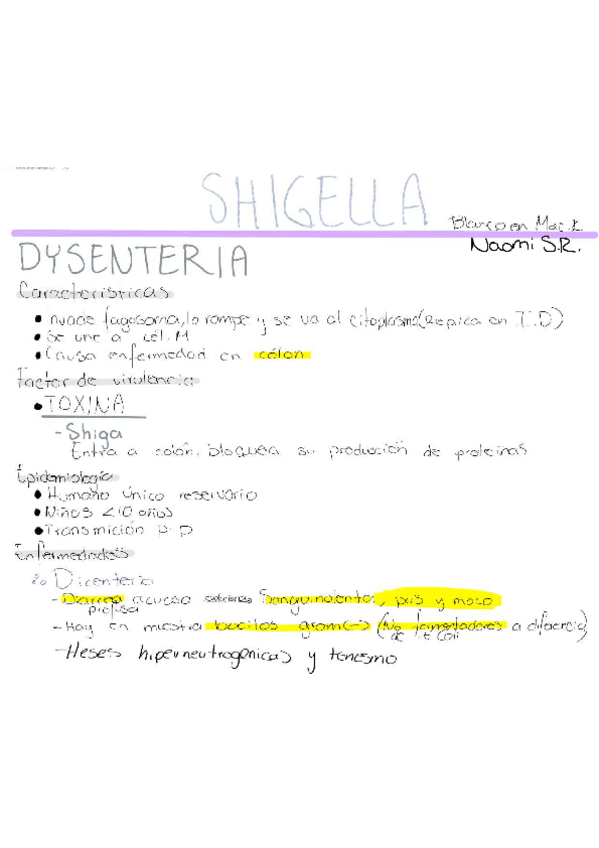 SHIGELLA
Blanco en Mac.K
Naomi S.R.
DYSENTERIA
Características
• Invade fagosoma, lo rompe y se va al citoplasma (Replica en I.D)
• Se une a cél. M
• Causa enfermedad en colon
Factor de virulencia
• TOXINA
- Shiga
Entra a colon, bloquea su producción de proteínas
Epidemiología
• Humano único reservorio
• Niños <10 años
• Transmición P-P
Enfermedades
Dicenteria
- Diarrea acuosa sanguinolenta, pus y moco
profusa
- Hay en muestra bacilos gram(-) (No fermentadores a difaencia)
de E coli
- Heses hiperneutrogenicas y tenesmo